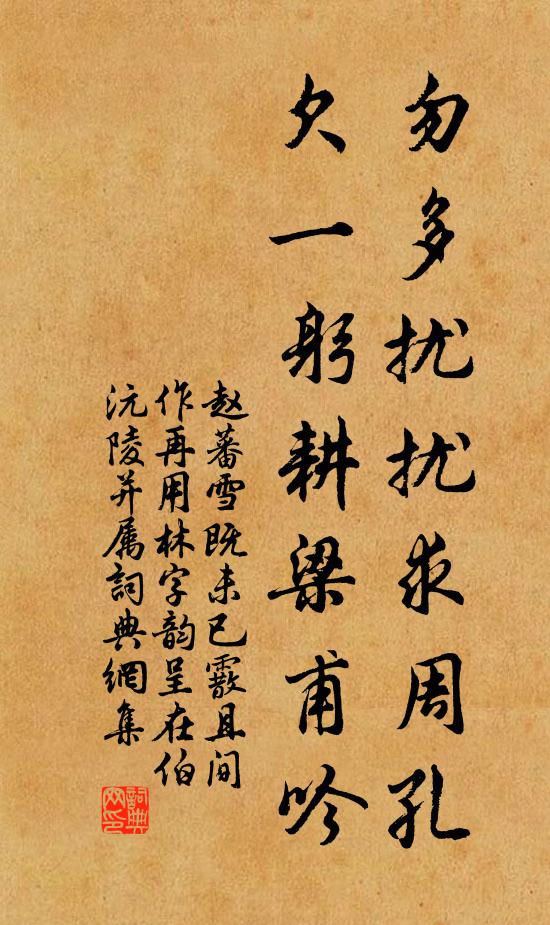 勿多扰扰求周孔
欠一躬耕梁甫吟
赵蕃雪既未已霰且间
作再用林字韵呈在伯
沅陵并属詞典網集
詞典网印